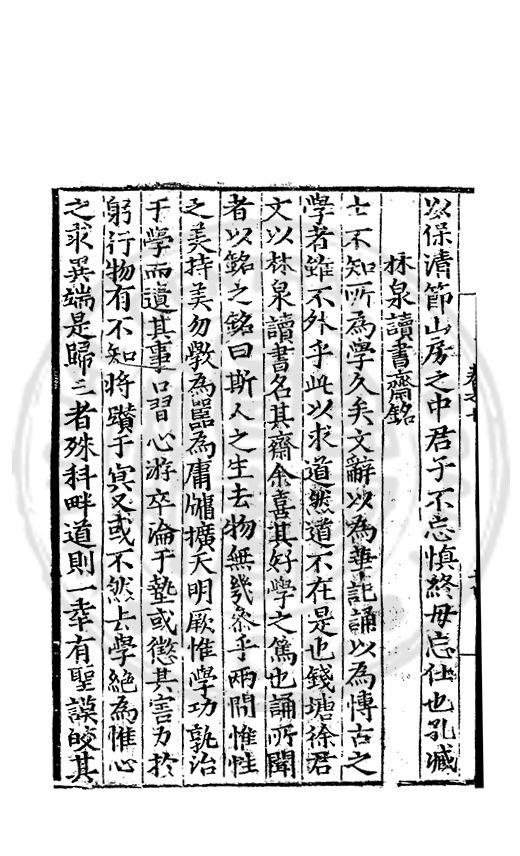 以保清節山房之中君子不忘慎終毋忘仕也孔臧
林泉讀書齋銘
士不知所為學久矣文辭以為華記誦以為博古之
學者雖不外乎此以求道然道不在是也錢塘徐君
文以林泉讀書名其齋余喜其好學之篤也誦所聞
者以銘之銘曰斯人之生去物無幾參乎兩間惟性
之美持美勿斆為嚚為庸牖擴天明厥惟學功孰治
于學而遺其事口習心游卒淪于藝或懲其害力於
躬行物有不知將躓于冥又或不然去學絕為惟心
之求異端是歸三者殊科畔道則一幸有聖謨皎其